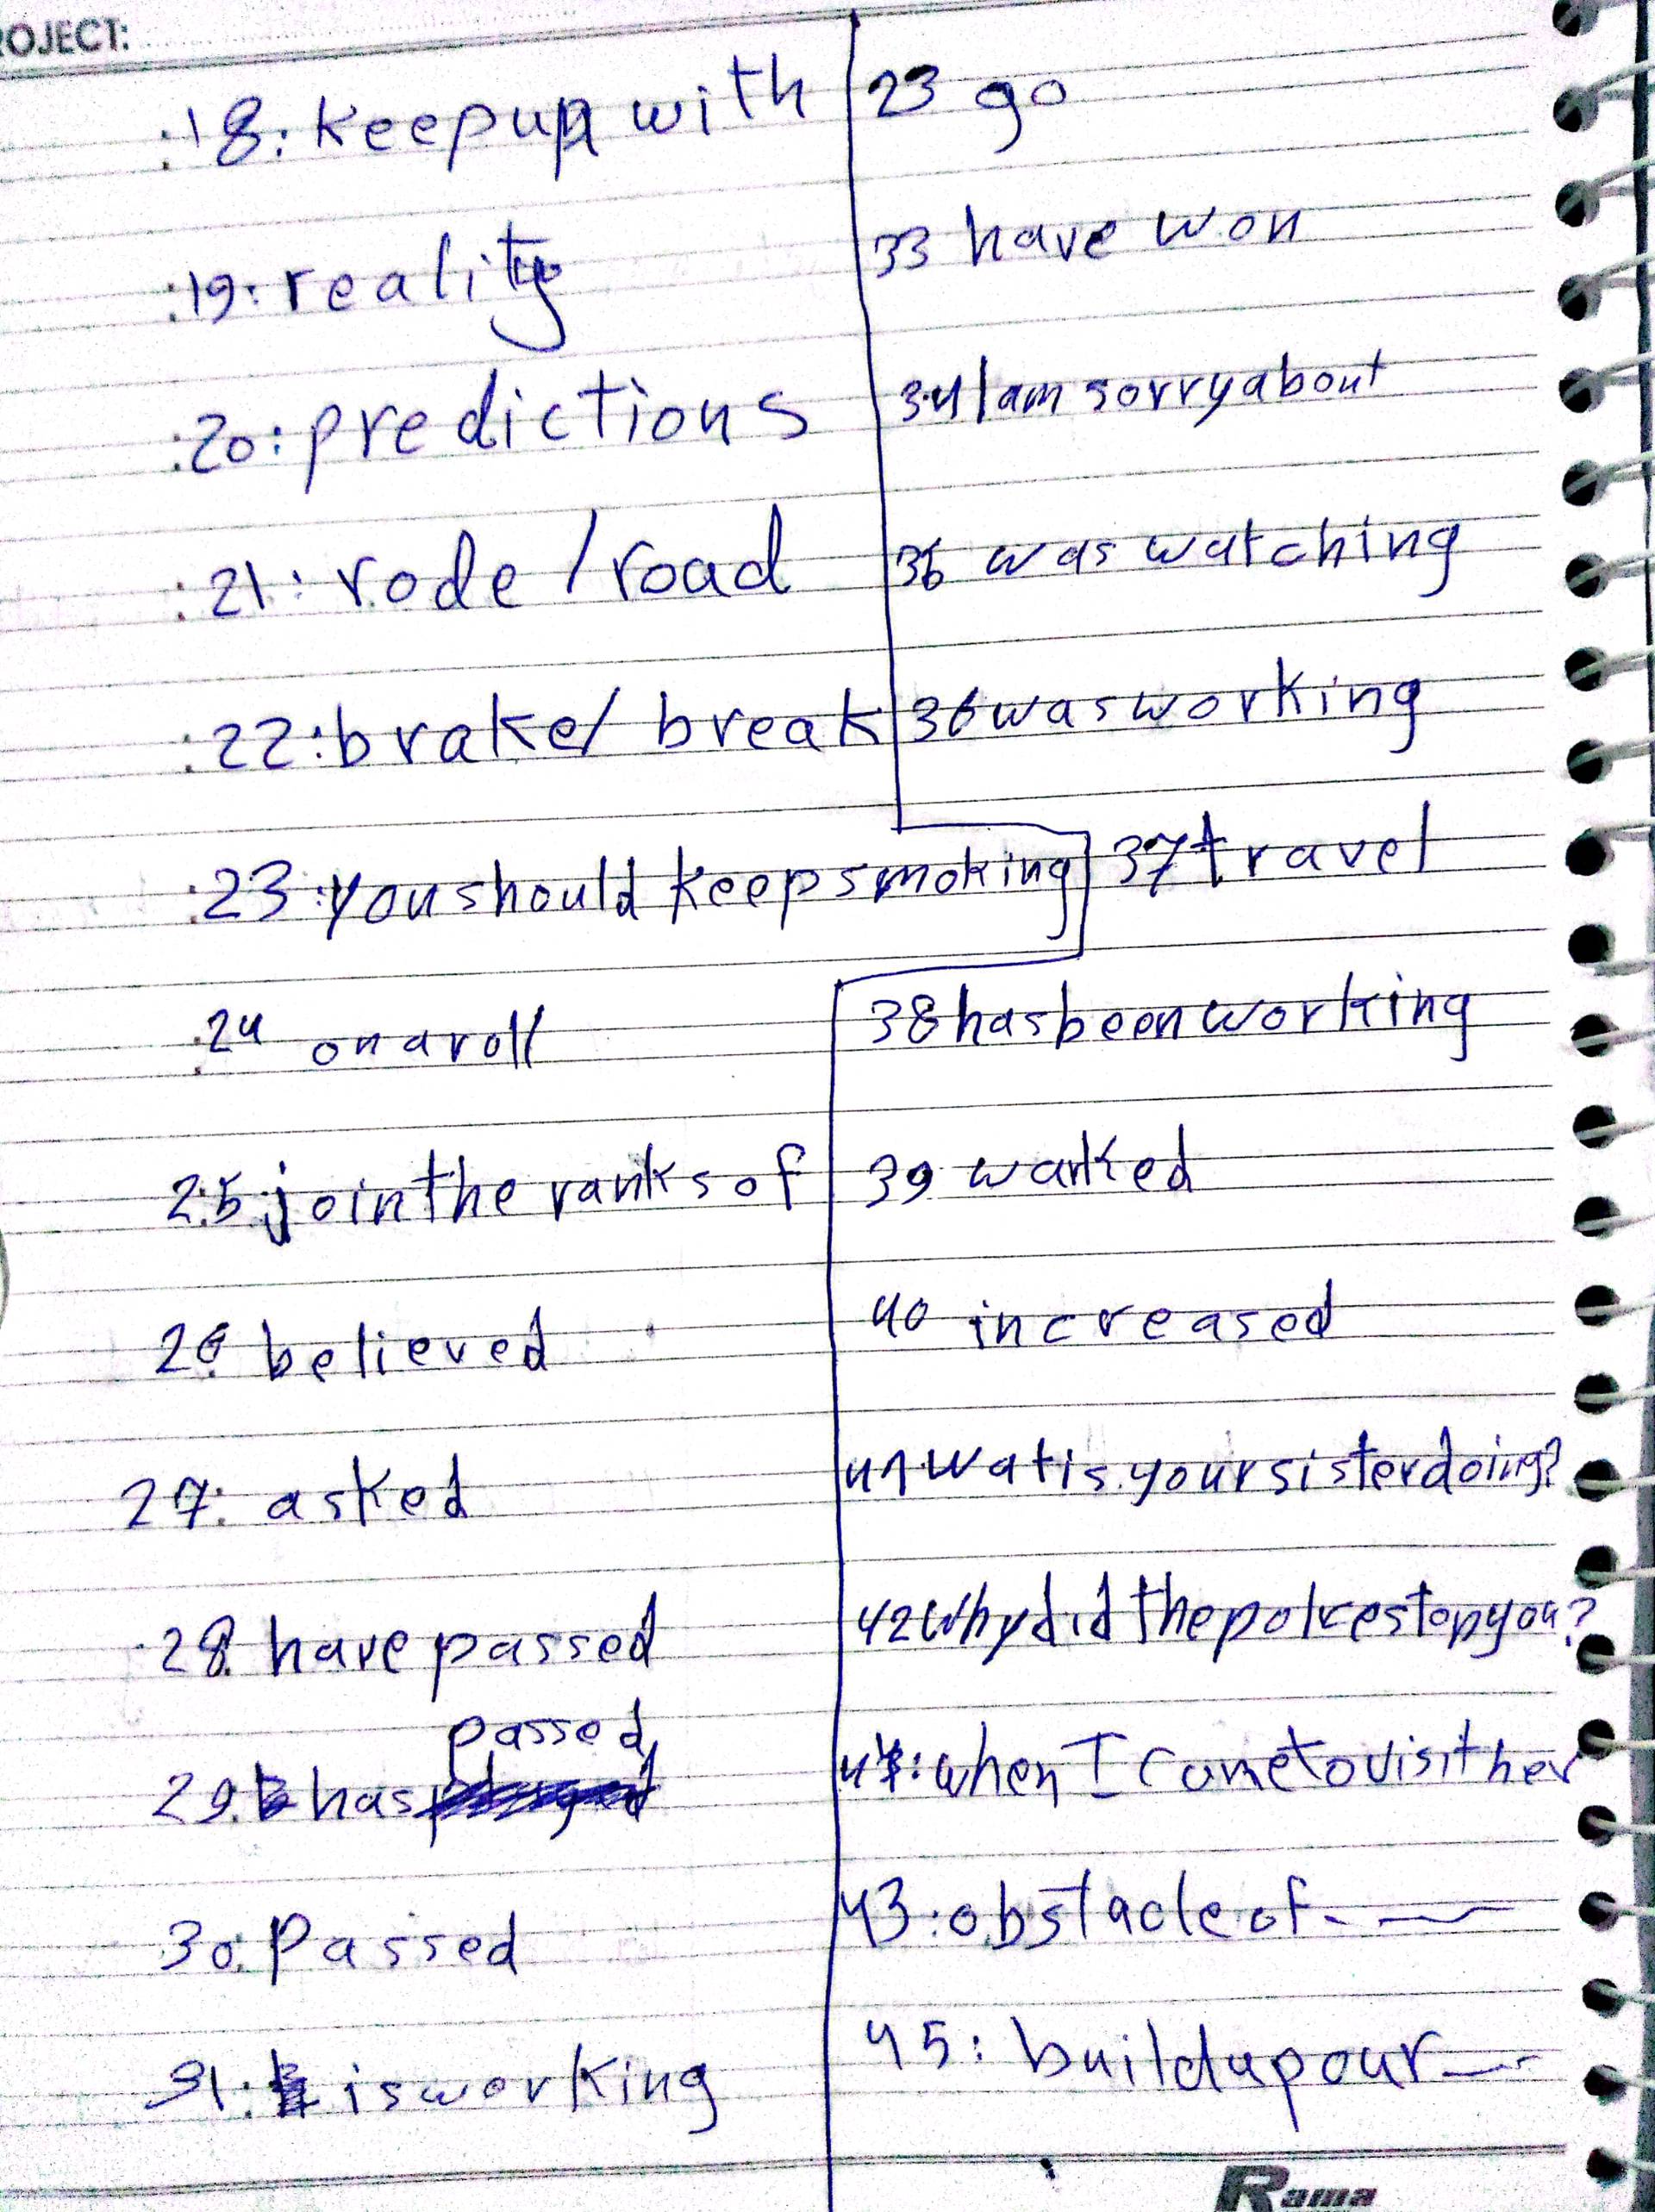 OJECT:
18: keep up with
19: reality
20: predictions
21: rode / road
22: brake / break
23: you should keep smoking
24 on a roll
25 join the ranks of
26 believed
27: asked
28 have passed
passed
29. has
30. Passed
31: is working
23 go
33 have won
34 I am sorry about
36 was watching
36 was working
37 travel
38 has been working
39 warked
40 increased
41 wat is your sister doing?
42 Why did the police stop you?
when I come to visit her
43: obstacle of
45: build up our
Rama